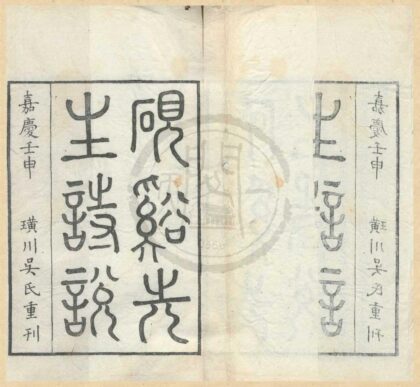 嘉慶壬申 璜川吳氏重刊
硯谿先
生詩說
嘉慶壬申 璜川吳氏重刊